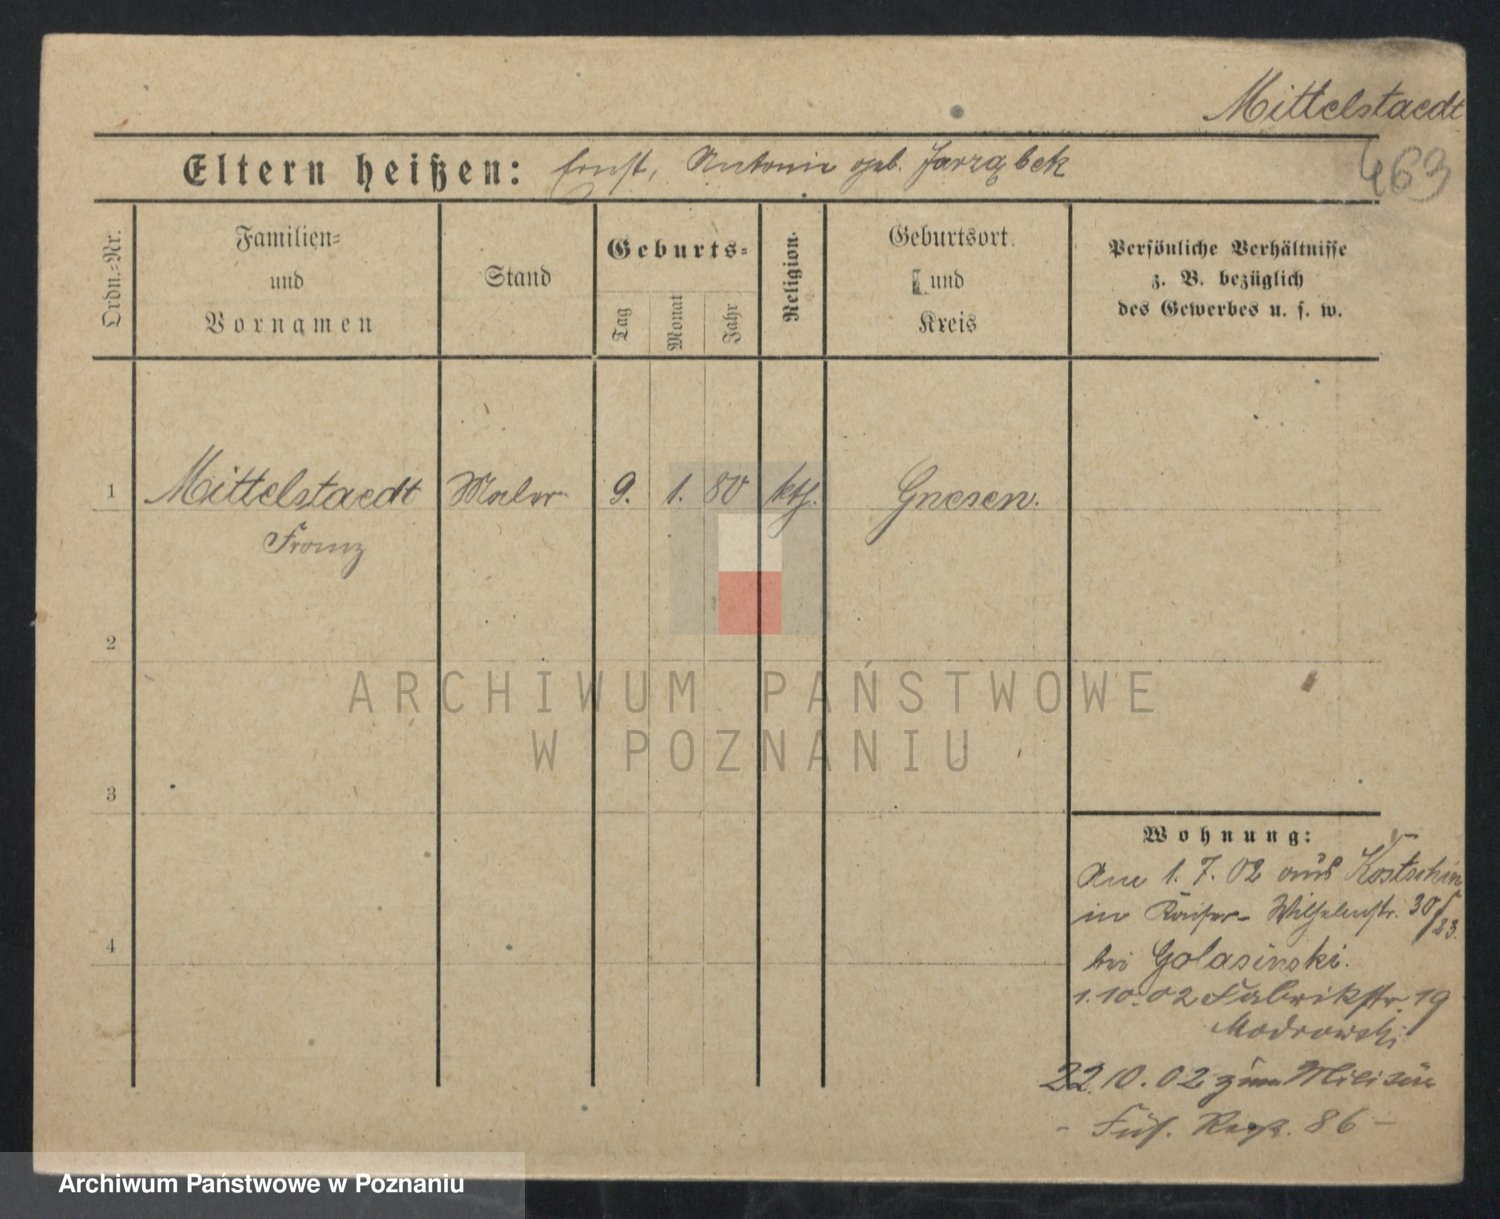 Mittelstaedt
463
Eltern heißen: Ernst, Antonie geb. Jarząbek
Ordn.=Nr.
Familien=
und
Vornamen
Stand
Geburts=
Tag
Monat
Jahr
Religion.
Geburtsort
und
Kreis
Persönliche Verhältnisse
z. B. bezüglich
des Gewerbes u. s. w.
1 Mittelstaedt Maler 9. 1. 80 kth. Gnesen.
Franz
2
ARCHIWUM PAŃSTWOWE
W POZNANIU
3
Wohnung:
Am 1. 7. 02 aus Kostschin
in Kaiser- Wilhelmstr. 30/23.
4
bei Golasinski.
1.10.02 Fabrikstr. 19
Modrowski
22.10.02 zum Militär
- Füs. Regt. 86 -
Archiwum Państwowe w Poznaniu